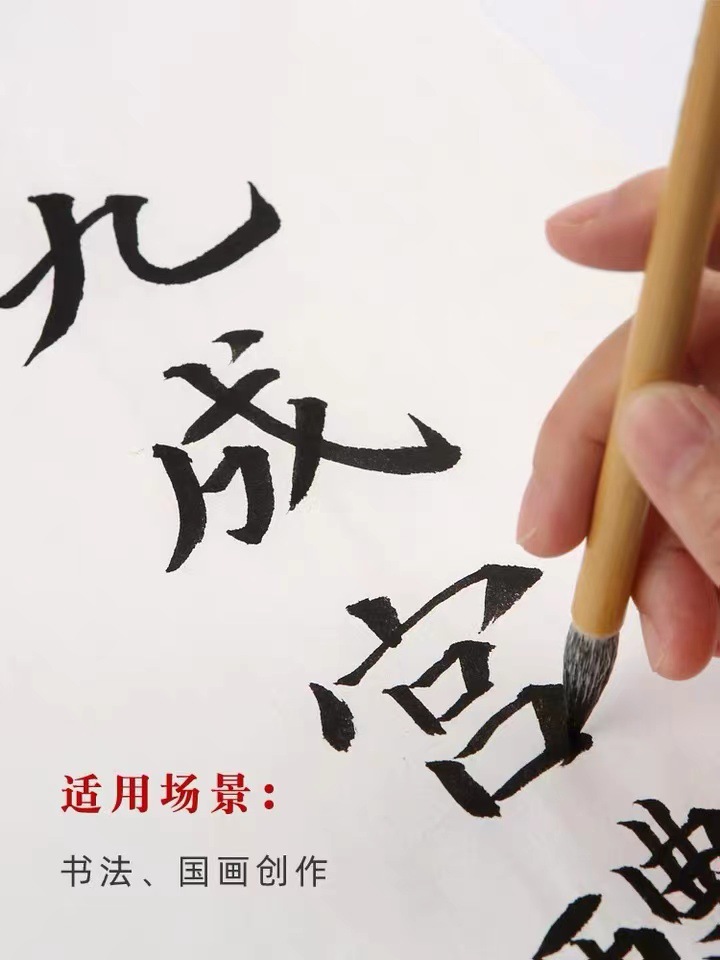 九成宫
醴
适用场景：
书法、国画创作